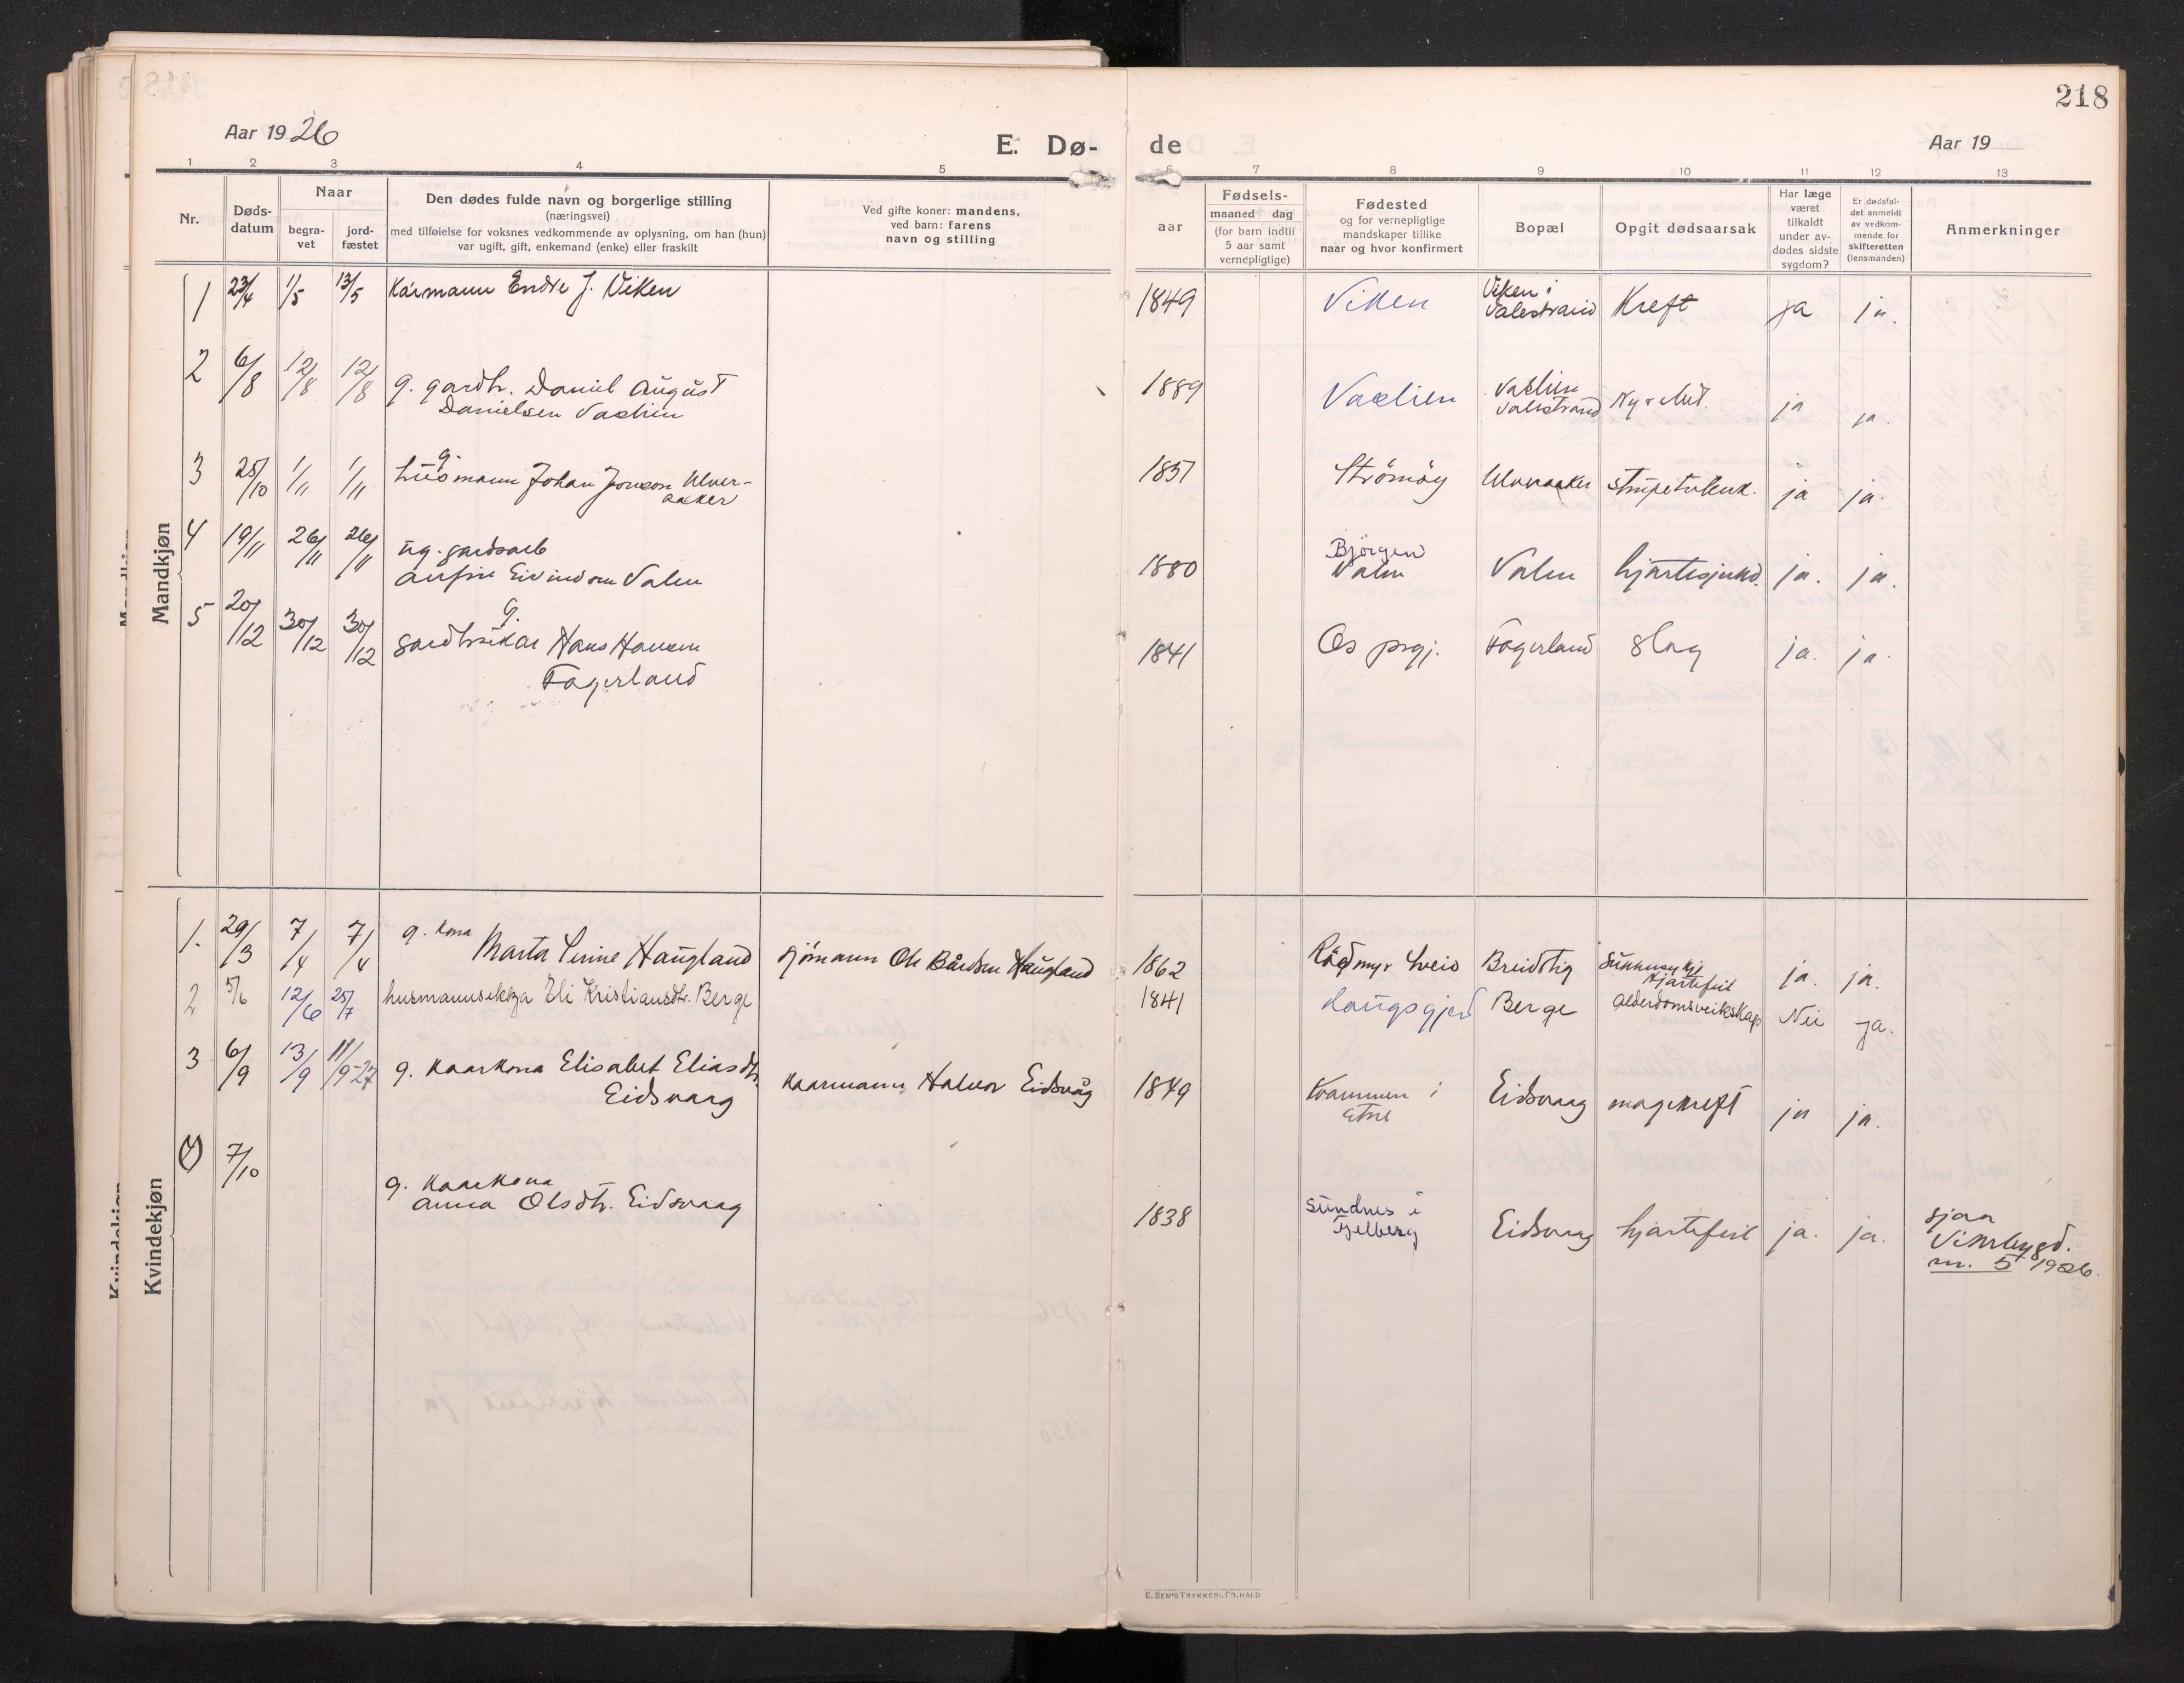 218
Aar 1926
E. Dø-
de
Aar 19
1 2 3 4 5 6 7 8 9 10 11 12 13
Nr.
Døds-
datum
Naar
begra-
vet
jord-
fæstet
Den dødes fulde navn og borgerlige stilling
(næringsvei)
med tilføielse for voksnes vedkommende av oplysning, om han (hun)
var ugift, gift, enkemand (enke) eller fraskilt
Ved gifte koner: mandens,
ved barn: farens
navn og stilling
Fødsels-
aar
maaned dag
(for barn indtil
5 aar samt
vernepligtige)
Fødested
og for vernepligtige
mandskaper tillike
naar og hvor konfirmert
Bopæl
Opgit dødsaarsak
Har læge
været
tilkaldt
under av-
dødes sidste
sygdom?
Er dødsfal-
det anmeldt
av vedkom-
mende for
skifteretten
(lensmanden)
Anmerkninger
Mandkjøn
1 23/4 1/5 13/5 Kårmann Endre J. Viken 1849 Viken Viken i
Valestrand Kreft ja ja.
2 6/8 12/8 12/8 g. gardbr. Daniel August
Danielsen Vaelien 1889 Vaelien Vaelien
Valestrand ja ja.
3 25/10 1/11 1/11 g.
husmann Johan Jonson Ulver-
aaker 1857 Strömöy Ulveraaker ja ja.
4 19/11 26/11 26/11 ug. gardsarb
Anfin Eivindsen Valen 1880 Björgen
Valen Valen hjartesjukd. ja. ja.
5 20/12 30/12 30/12 g.
gardbrukar Hans Hansen
Fagerland 1841 Os prgj. Fagerland Slag ja. ja.
Kvindekjøn
1. 29/3 7/4 7/4 g. kona
Marta Serine Haugland sjömann Ole Bårdsen Haugland 1862 Rödmyr Sveio Breidstig Sukkersykje
Hjartefeil ja. ja.
2 5/6 12/6 25/7 husmannsekkja Eli Kristiansdtr. Berge 1841 Haugsgjerd Berge Alderdomsveikskap Nei ja.
3 6/9 13/9 11/9-27 g. Kaarkona Elisabet Eliasdtr.
Eidsvaag Kaarmann Halvor Eidsvåg 1849 Kvammen i
Etne Eidsvaag magekreft ja ja.
4 7/10 g. Kaarkona
Anna Olsdtr. Eidsvaag 1838 Sundnes i
Fjelberg Eidsvaag hjartefeil ja. ja. sjaa
Vikebygd.
nr. 5 1926.
E. SEM'S TRYKKERI, FR.HALD